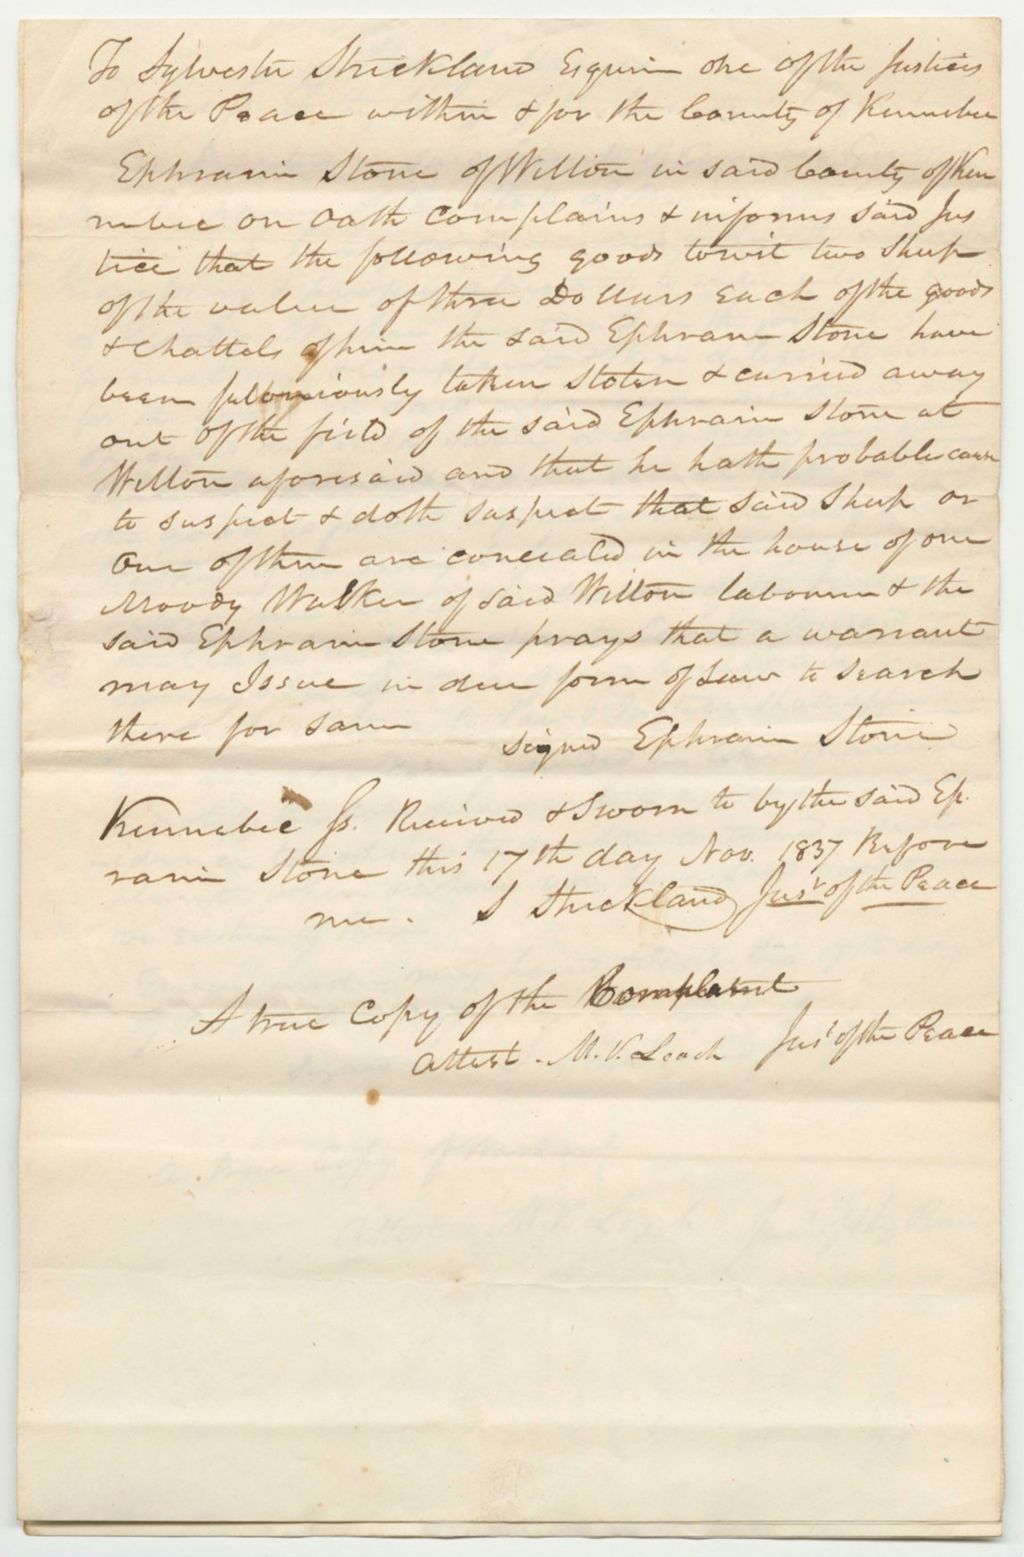 To Sylvester Strickland Esquire one of the Justices
of the Peace within & for the County of Kennebec
Ephraim Stone of Wilton in said County of Ken
nebec on Oath Complains & informs said Jus
tice that the following goods towit two Sheep
of the value of three Dollars each of the goods
& Chattels of him the said Ephraim Stone have
been feloniously taken stolen & carried away
out of the field of the said Ephraim Stone at
Wilton aforesaid and that he hath probable cause
to suspect & doth suspect that said Sheep or
one of them are concealed in the house of one
Moody Walker of said Wilton labourer & the
said Ephraim Stone prays that a warrant
may Issue in due form of Law to search
there for same
signed Ephraim Stone
Kennebec Ss. Received & Sworn to by the said Eph
raim Stone this 17th day Nov. 1837 Before
me. S Strickland Jus't of the Peace
A true Copy of the Complaint
Attest. M. V. Leach Jus't of the Peace